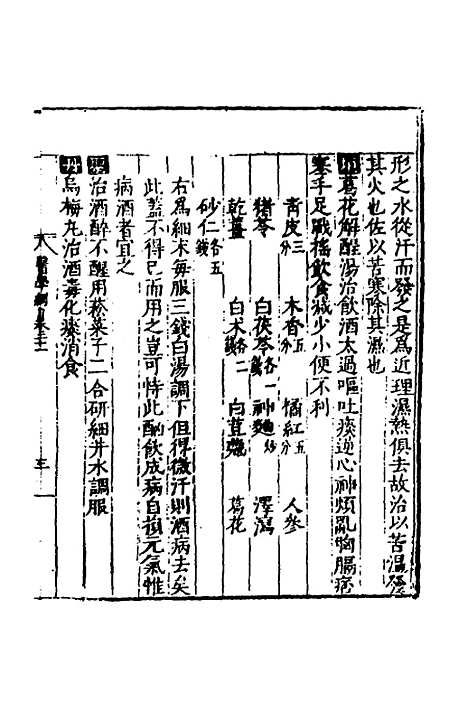 形之水從汗而發之是為近理濕熱俱去故治以苦溫發
其火也佐以苦寒除其濕也
葛花解酲湯治飲酒太過嘔吐痰逆心神煩亂胸膈痞
塞手足戰搖飲食減少小便不利
青皮三分 木香五分 橘紅五分 人參
豬苓 白茯苓各一錢 神麯炒 澤瀉
乾薑 白朮各二錢 白荳蔻 葛花
砂仁各五錢
右為細末每服三錢白湯調下但得微汗則酒病去矣
此蓋不得已而用之豈可恃此酗飲成病自損元氣惟
病酒者宜之
治酒醉不醒用菘菜子二合研細井水調服
丹烏梅丸治酒毒化痰消食
醫學綱目卷